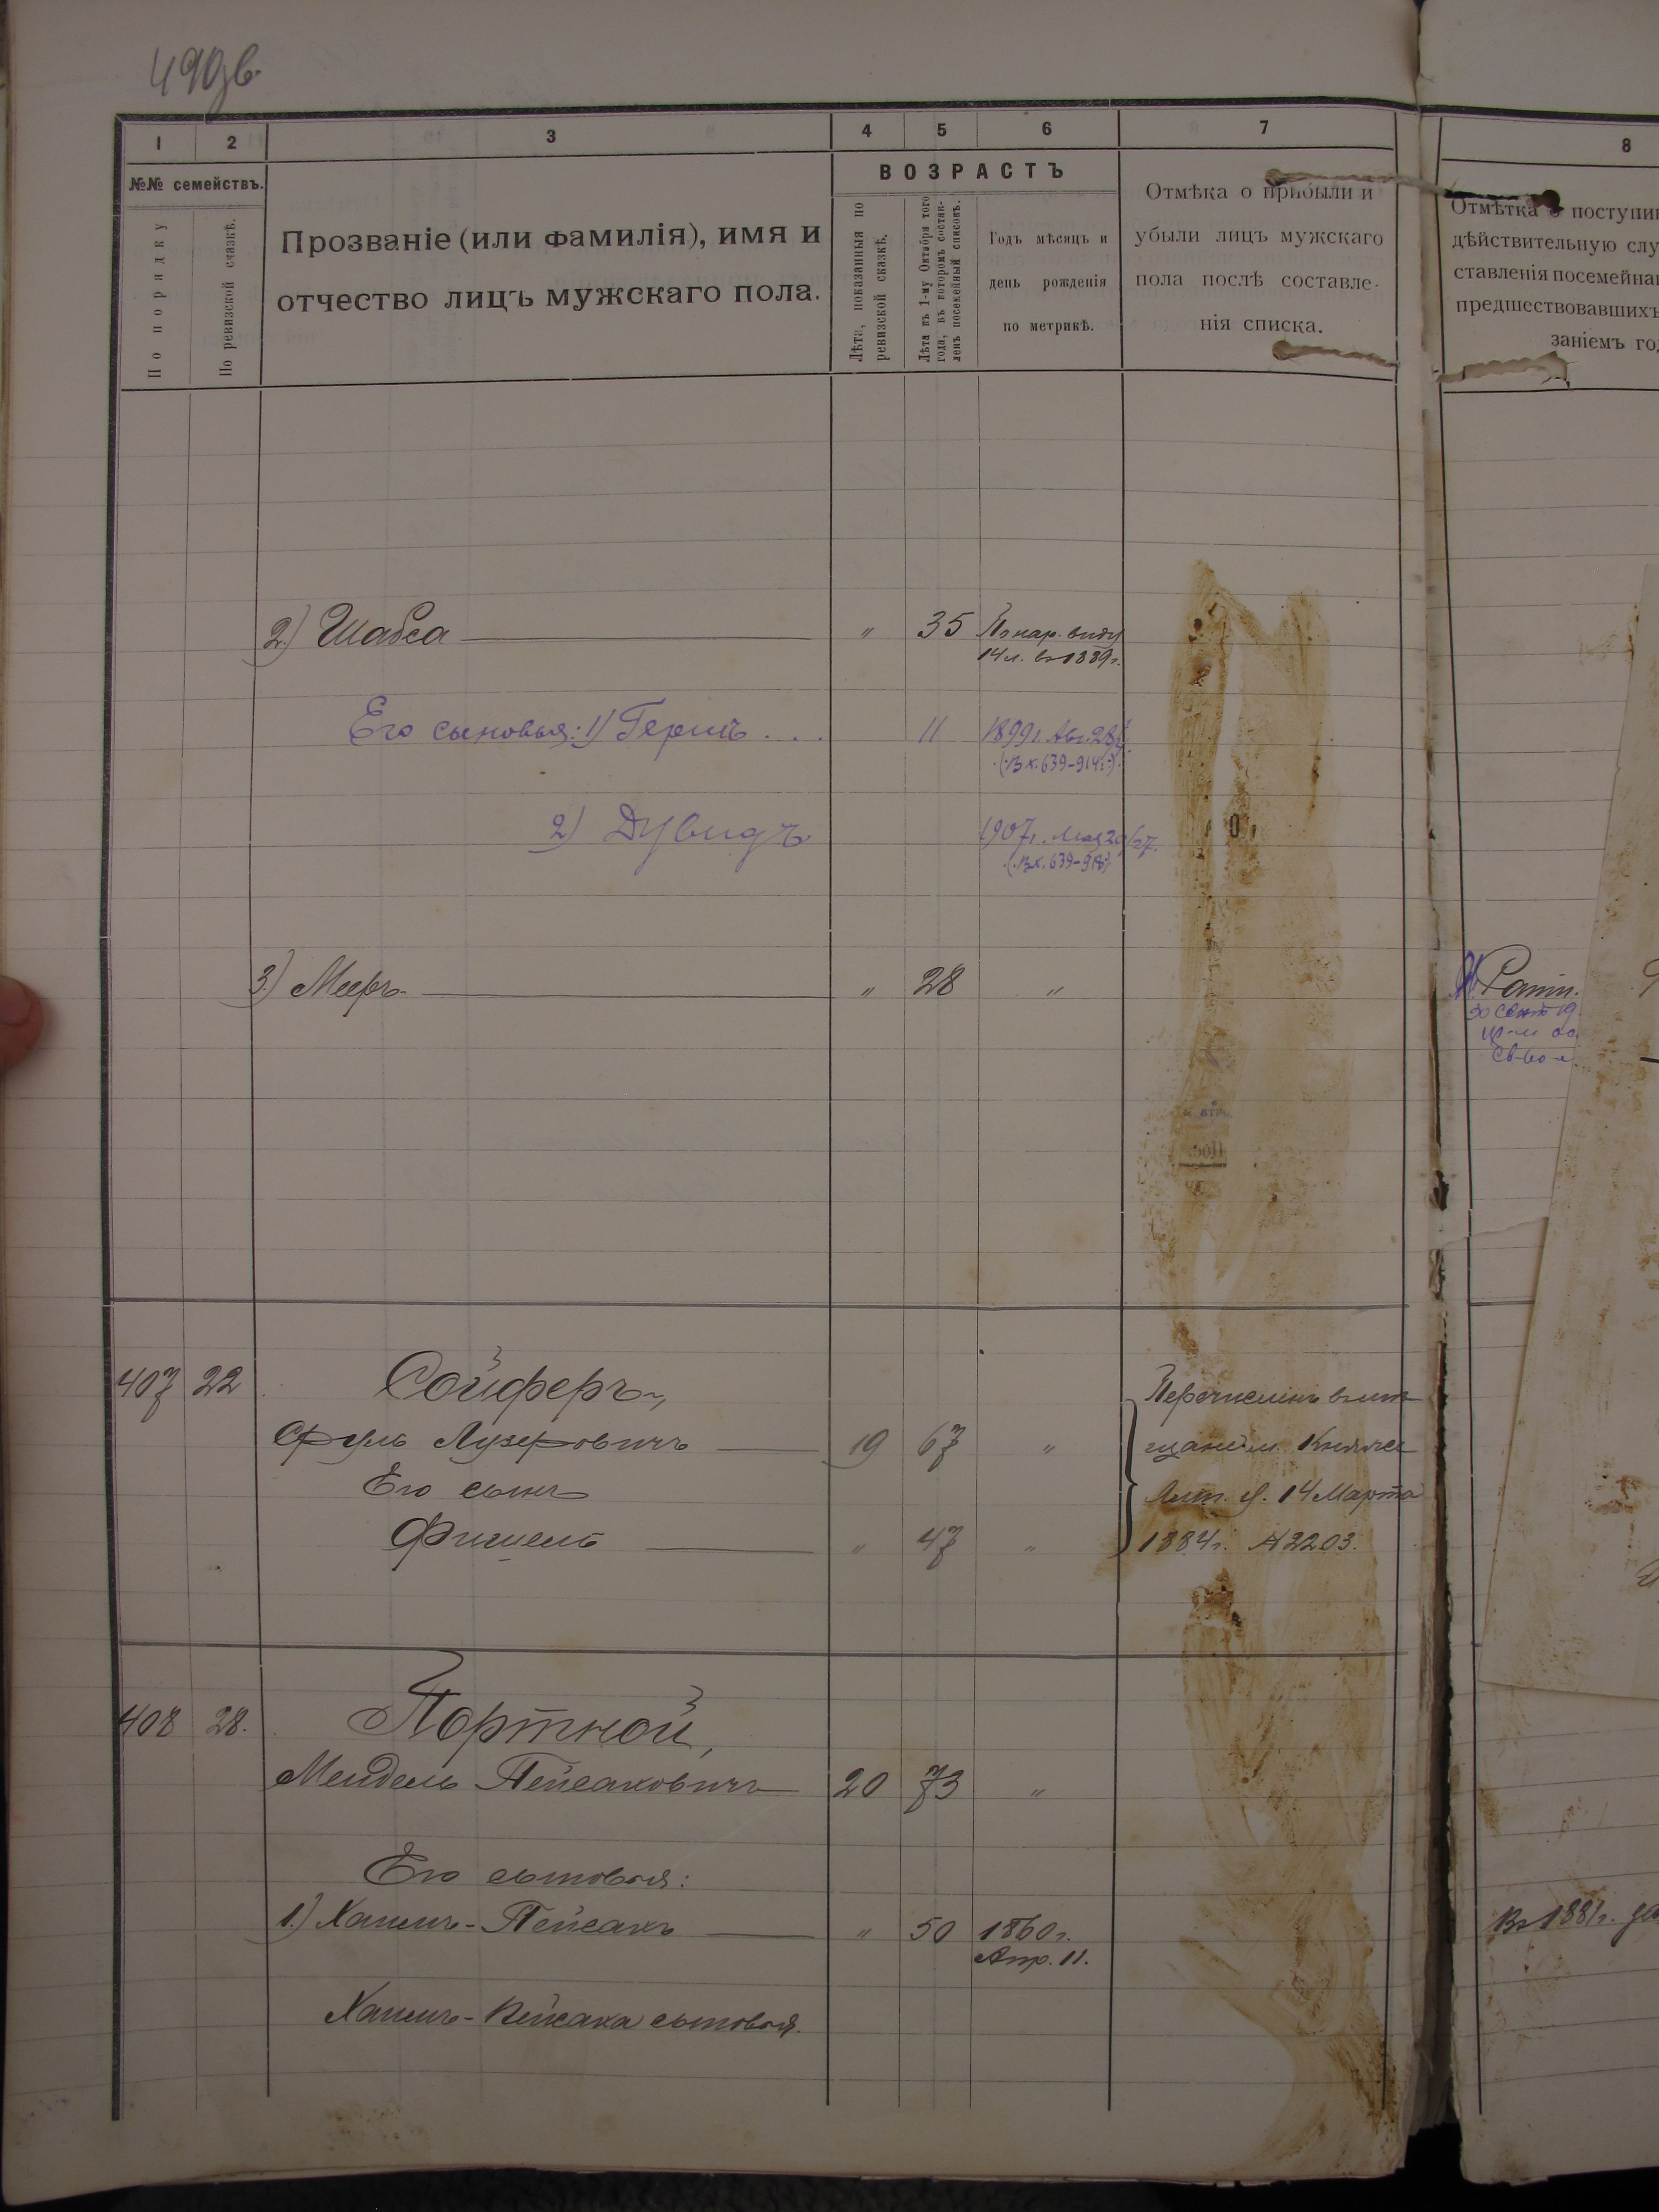 490 об
1 2 3 4 5 6 7 8
№№ семействъ.
По порядку
По ревизской сказкѣ.
Прозваніе (или фамилія), имя и
отчество лицъ мужскаго пола.
ВОЗРАСТЪ
Лѣта, показанныя по
ревизской сказкѣ.
Лѣта къ 1-му Октября того
года, въ которомъ состав-
ленъ посемейный списокъ.
Годъ мѣсяцъ и
день рожденія
по метрикѣ.
Отмѣка о прибыли и
убыли лицъ мужскаго
пола послѣ составле-
нія списка.
Отмѣтка о поступи
дѣйствительную слу
ставленія посемейна
предшествовавшихъ
заніемъ го
2.) Шабса " 35 По нар. виду
14 л. въ 1889 г.
Его сыновья: 1) Гершъ . . . 11 1899 г. Авг. 28
(Вх. 639-914 г.)
2) Дувидъ 1907 г. Мая 20/27.
(Вх. 639-914)
3.) Мееръ " 28 "
30 Сент 19
407 22 Сойферъ,
Сруль Лузеровичъ 19 67 "
Его сынъ
Фишель " 47 "
Перечисленъ въ мѣ
щане м.
14 Марта
1884 г. № 2203.
408 28. Портной,
Мендель Пейсаховичъ 20 73 "
Его сыновья:
1.) Хаимъ-Пейсахъ " 50 1860 г.
Апр. 11.
Въ 1881 г.
Хаимъ-Пейсаха сыновья.